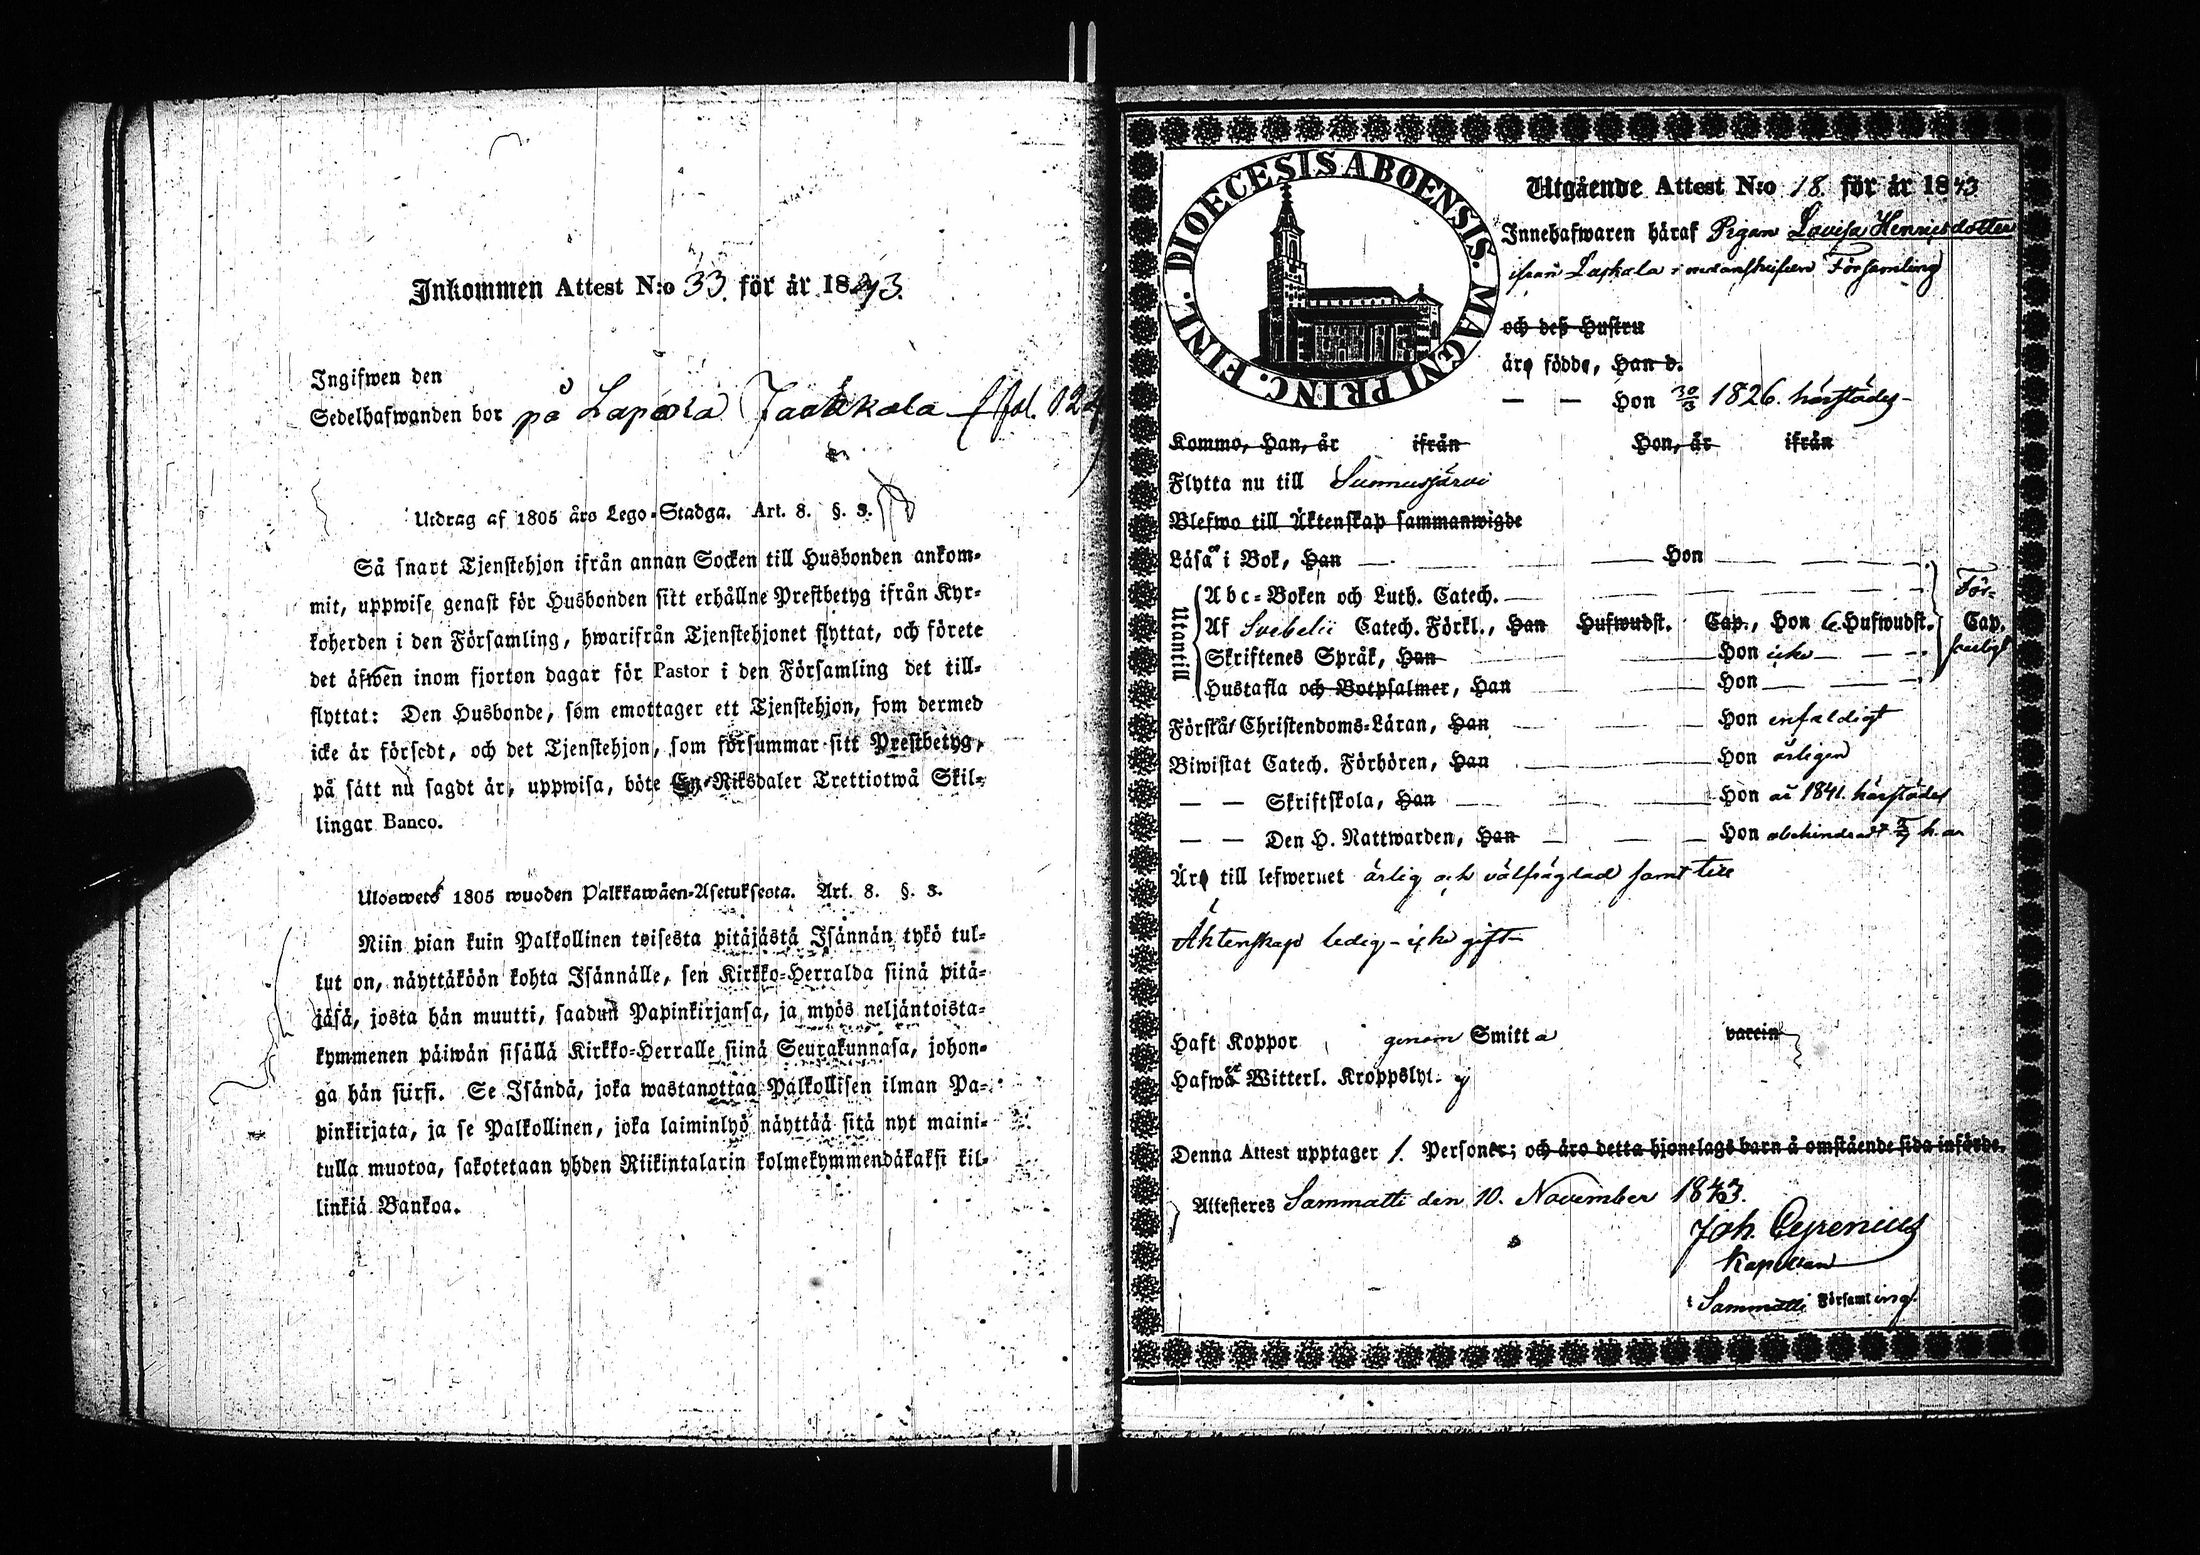 Inkommen Attest N:o 33. för år 1843.
Ingifwen den
Sedelhafwanden bor på Lapala Jaakkola fol. 124
Utdrag af 1805 års Lego-Stadga. Art. 8. §. 3.
Så snart Tjenstehjon ifrån annan Socken till Husbonden ankom-
mit, uppwise genast för Husbonden sitt erhållne Prestbetyg ifrån Kyr-
koherden i den Församling, hwarifrån Tjenstehjonet flyttat, och förete
det äfwen inom fjorton dagar för Pastor i den Församling det till-
flyttat: Den Husbonde, som emottager ett Tjenstehjon, som dermed
icke är försedt, och det Tjenstehjon, som försummar sitt Prestbetyg,
på sätt nu sagdt är, uppwisa, böte En Riksdaler Trettiotwå Skil-
lingar Banco.
Uloswets 1805 wuoden Palkkawäen-Asetuksesta. Art. 8. §. 3.
Niin pian kuin Palkollinen toisesta pitäjästä Isännän tykö tul-
lut on, näyttäköön kohta Isännälle, sen Kirkko-Herralda siinä pitä-
jäsä, josta hän muutti, saadun Papinkirjansa, ja myös neljäntoista-
kymmenen päiwän sisällä Kirkko-Herralle siinä Seurakunnasa, johon-
ga hän siirsi. Se Isändä, joka wastanottaa Palkollisen ilman Pa-
pinkirjata, ja se Palkollinen, joka laiminlyö näyttää sitä nyt maini-
tulla muotoa, sakotetaan yhden Riikintalarin kolmekymmendäkaksi kil-
linkiä Bankoa.
DIOECESIS ABOENSIS. MAGNI PRINC. FINL.
Utgående Attest N:o 18. för år 1843
Innehafwaren häraf Pigan Lovisa Henricsdotter
ifrån Laxkala i nedanskrifven Församling
och deß Hustru
äro födde, Han d.
— — Hon 30/3 1826. härstädes
Kommo, Han, år ifrån Hon, år ifrån
Flytta nu till Suomusjärvi
Blefwo till Äktenskap sammanwigde
Läsa i Bok, Han — Hon — För-
Utantill
Abc-Boken och Luth. Catech. —
Af Svebelii Catech. Förkl., Han Hufwudst. Cap., Hon 6. Hufwudst. Cap.
Skriftenes Språk, Han — Hon icke — svarligt
Hustafla och Botpsalmer, Han — Hon —
Förstå Christendoms-Läran, Han — Hon enfaldigt
Biwistat Catech. Förhören, Han — Hon årligen
— — Skriftskola, Han — Hon år 1841. härstädes
— — Den H. Nattwarden, Han — Hon obehindradt h. a.
Äro till lefwernet ärlig och välfrägdad samt till
Äktenskap ledig – icke gift
Haft Koppor genom Smitta vaccin
Hafwa Witterl. Kroppslyt. ej
Denna Attest upptager 1. Personer; och äro detta hjonelags barn å omstående sida införde.
Attesteres Sammatti den 10. November 1843.
Joh. Cyrenius
Kapellan
i Sammatti Församling.